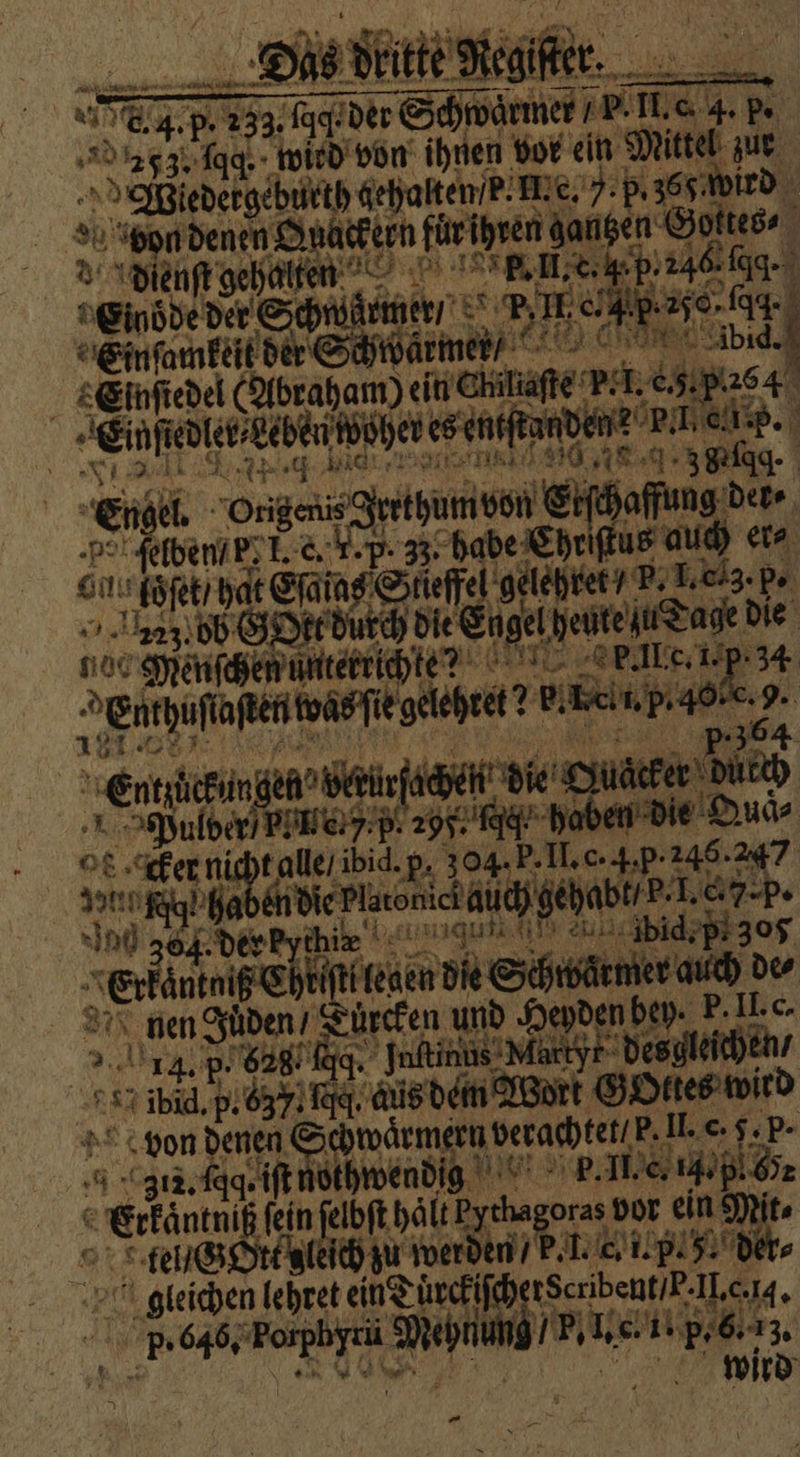 Das dritte Regiſter.
c. 4. p. 233. ſqq. der Schwaͤrmer / P. II. c. 4. p.
253. ſqq. wird von ihnen vor ein Mittel zur
Wiedergeburth gehalten / P. II. c. 7. p. 365. wird
von denen Quaͤckern fuͤr ihren gantzen Gottes⸗
dienſt gehalten P. II. c. 4. p. 246. ſqq.
Einoͤde der Schwaͤrmer / P. II. c. 4. p. 250. ſqq.
Einſamkeit der Schwaͤrmer / ibid.
Einſiedel (Abraham) ein Chiliaſte P. I. c. 5. p. 264
Einſiedler⸗Leben woher es entſtanden? P. I. c. 1. p.
38. ſqq.
Engel. Origenis Irrthum von Erſchaffung der⸗
ſelben / P. I. c. 1. p. 33. habe Chriſtus auch er⸗
loͤſet / hat Eſaias Stieffel gelehret / P. I. c. 3. p.
223. ob GOtt durch die Engel heute zu Tage die
Menſchen unterrichte? P. II. c. 1. p. 34
Enthuſiaſten was ſie gelehret? P. I. c. 1. p. 40. c. 9.
p. 364
Entzuͤckungen verurſachen die Quaͤcker durch
Pulver / P. II. c. 7. p. 295. ſqq. haben die Quaͤ⸗
cker nicht alle / ibid. p. 304. P. II. c. 4. p. 246. 247
ſqq. haben die Platonici auch gehabt / P. I. c. 7. p.
304. der Pythiæ ibid. p. 305
Erkaͤntniß Chriſti legen die Schwaͤrmer auch de⸗
nen Juͤden / Tuͤrcken und Heyden bey. P. II. c.
14. p. 628. ſqq. Juſtinus Martyr desgleichen /
ibid. p. 637. ſqq. aus dem Wort GOttes wird
von denen Schwaͤrmern verachtet / P. II. c. 5. p.
312. ſqq. iſt nothwendig P. II. c. 14. p. 62
Erkaͤntniß ſein ſelbſt haͤlt Pythagoras vor ein Mit⸗
tel / GOtt gleich zu werden / P. I. c. 1. p. 5. der⸗
gleichen lehret ein Tuͤrckiſcher Scribent / P. II. c. 14.
p. 646. Porphyrii Meynung / P. I. c. 1. p. 6. 13.
wird